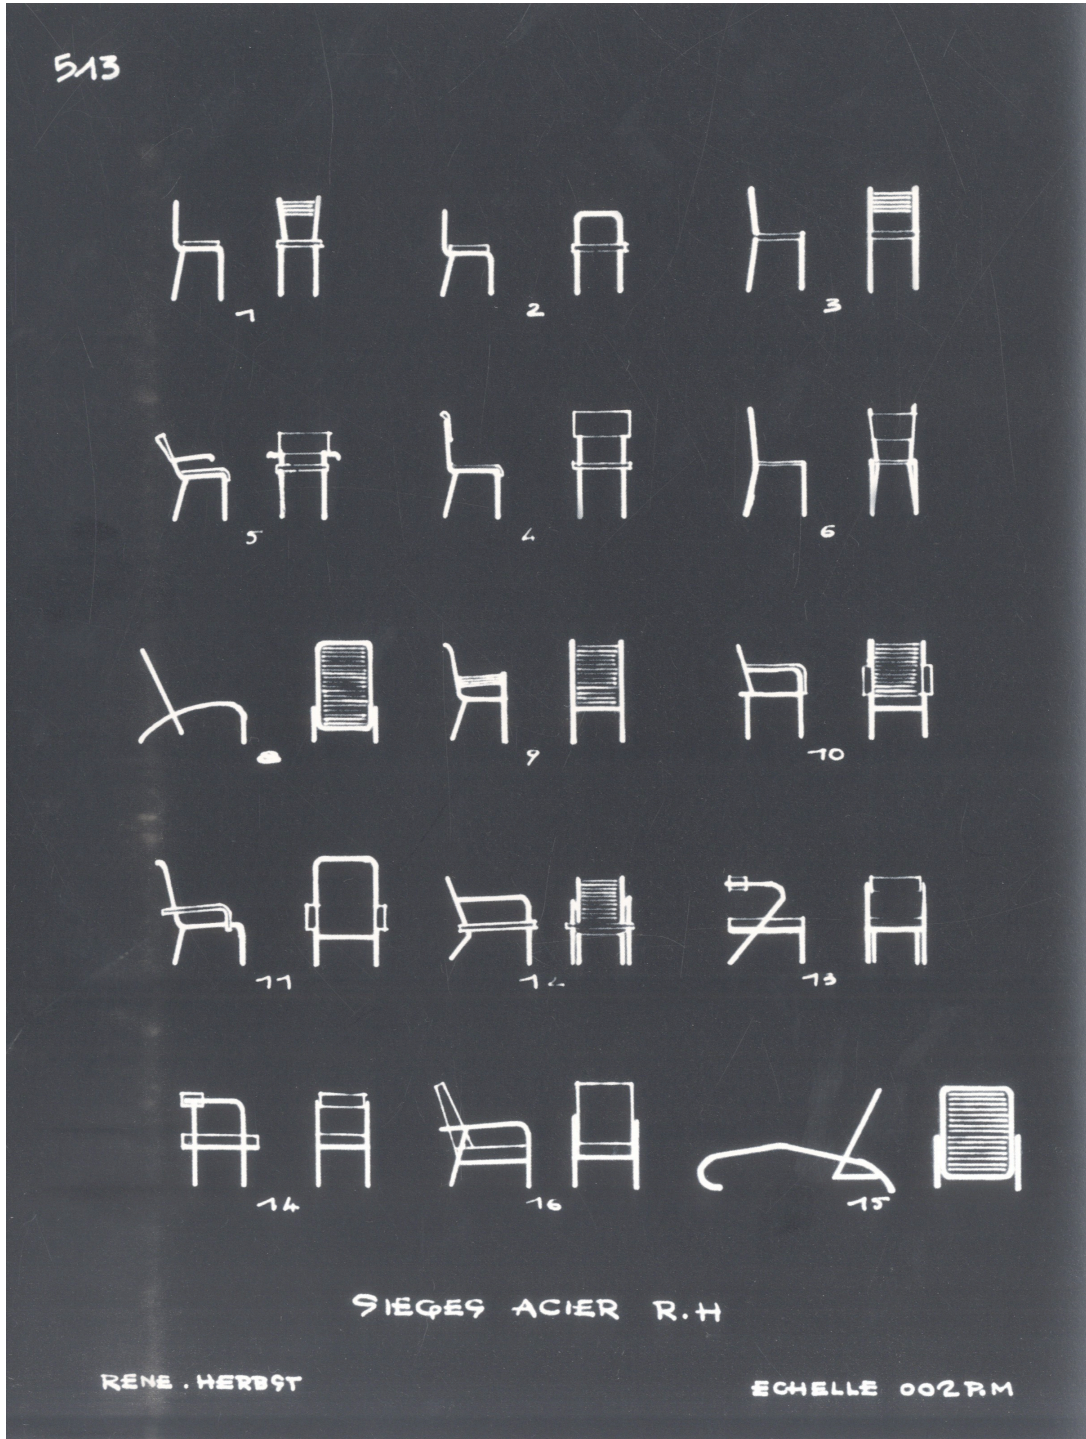 513
1 2 3
5 4 6
9 10
11 12 13
14 16 15
SIEGES ACIER R.H
RENE . HERBST
ECHELLE 002 P.M